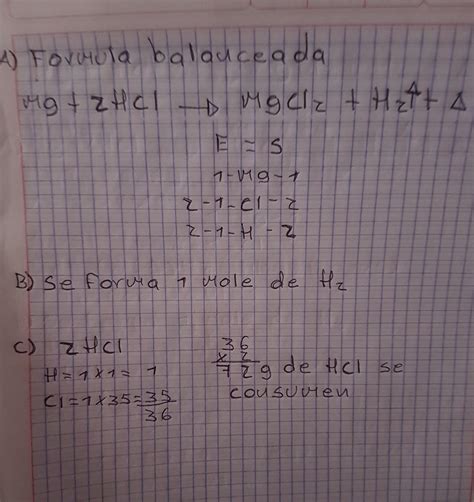 A) Formula balanceada
Mg + 2HCl → MgCl2 + H2↑ + Δ
E = S
1-Mg-1
2-1-Cl-2
2-1-H-2
B) Se forma 1 mole de H2
C) 2HCl
H=1x1= 1
Cl=1x35=35
36
36
x 2
72g de HCl se
consumen